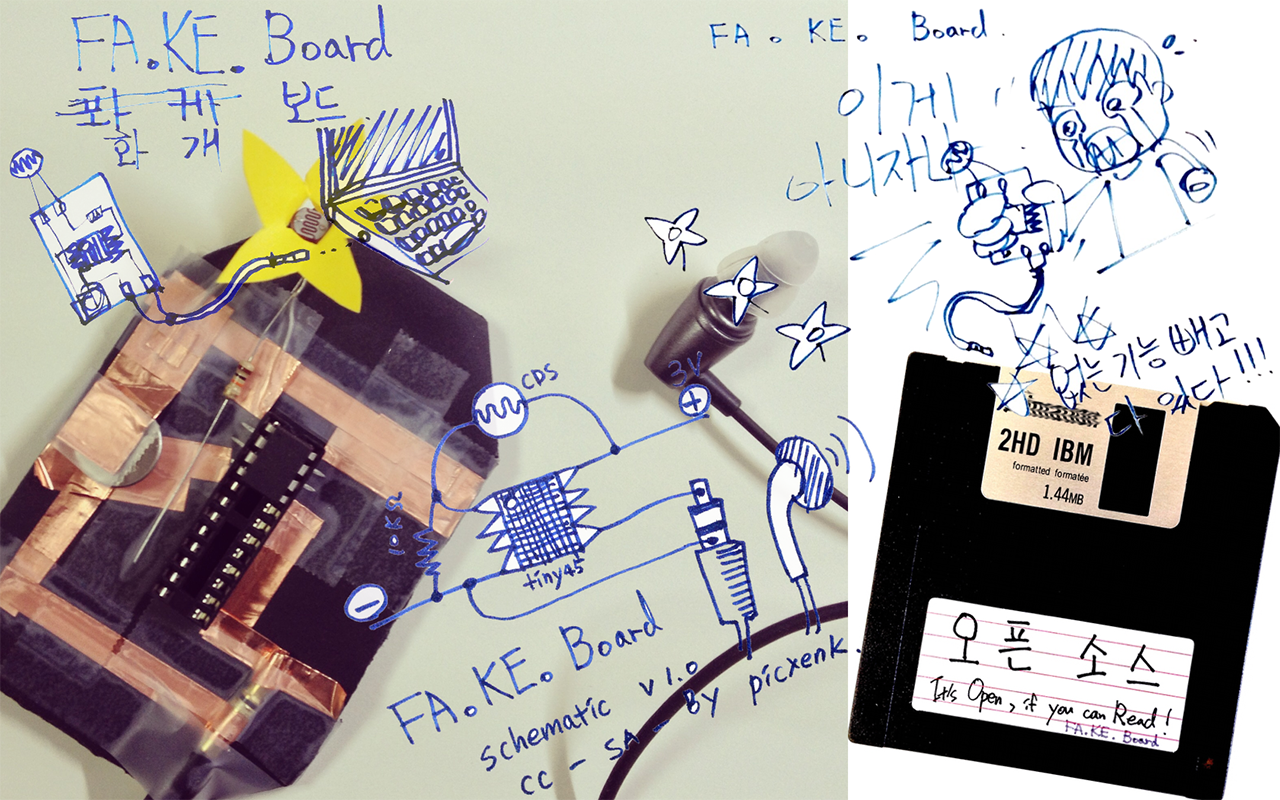 FA.KE. Board
파 카 보드
화 개
CDS
3V
+
10KΩ
-
tiny45
FA.KE. Board
schematic v 1.0
CC - SA - BY picxenk.
FA. KE. Board.
이게
아니자나
없는 기능 빼고
다 있다!!!
2HD IBM
formatted formatée
1.44MB
오픈 소스
It's Open, if you can Read!
FA.KE. Board